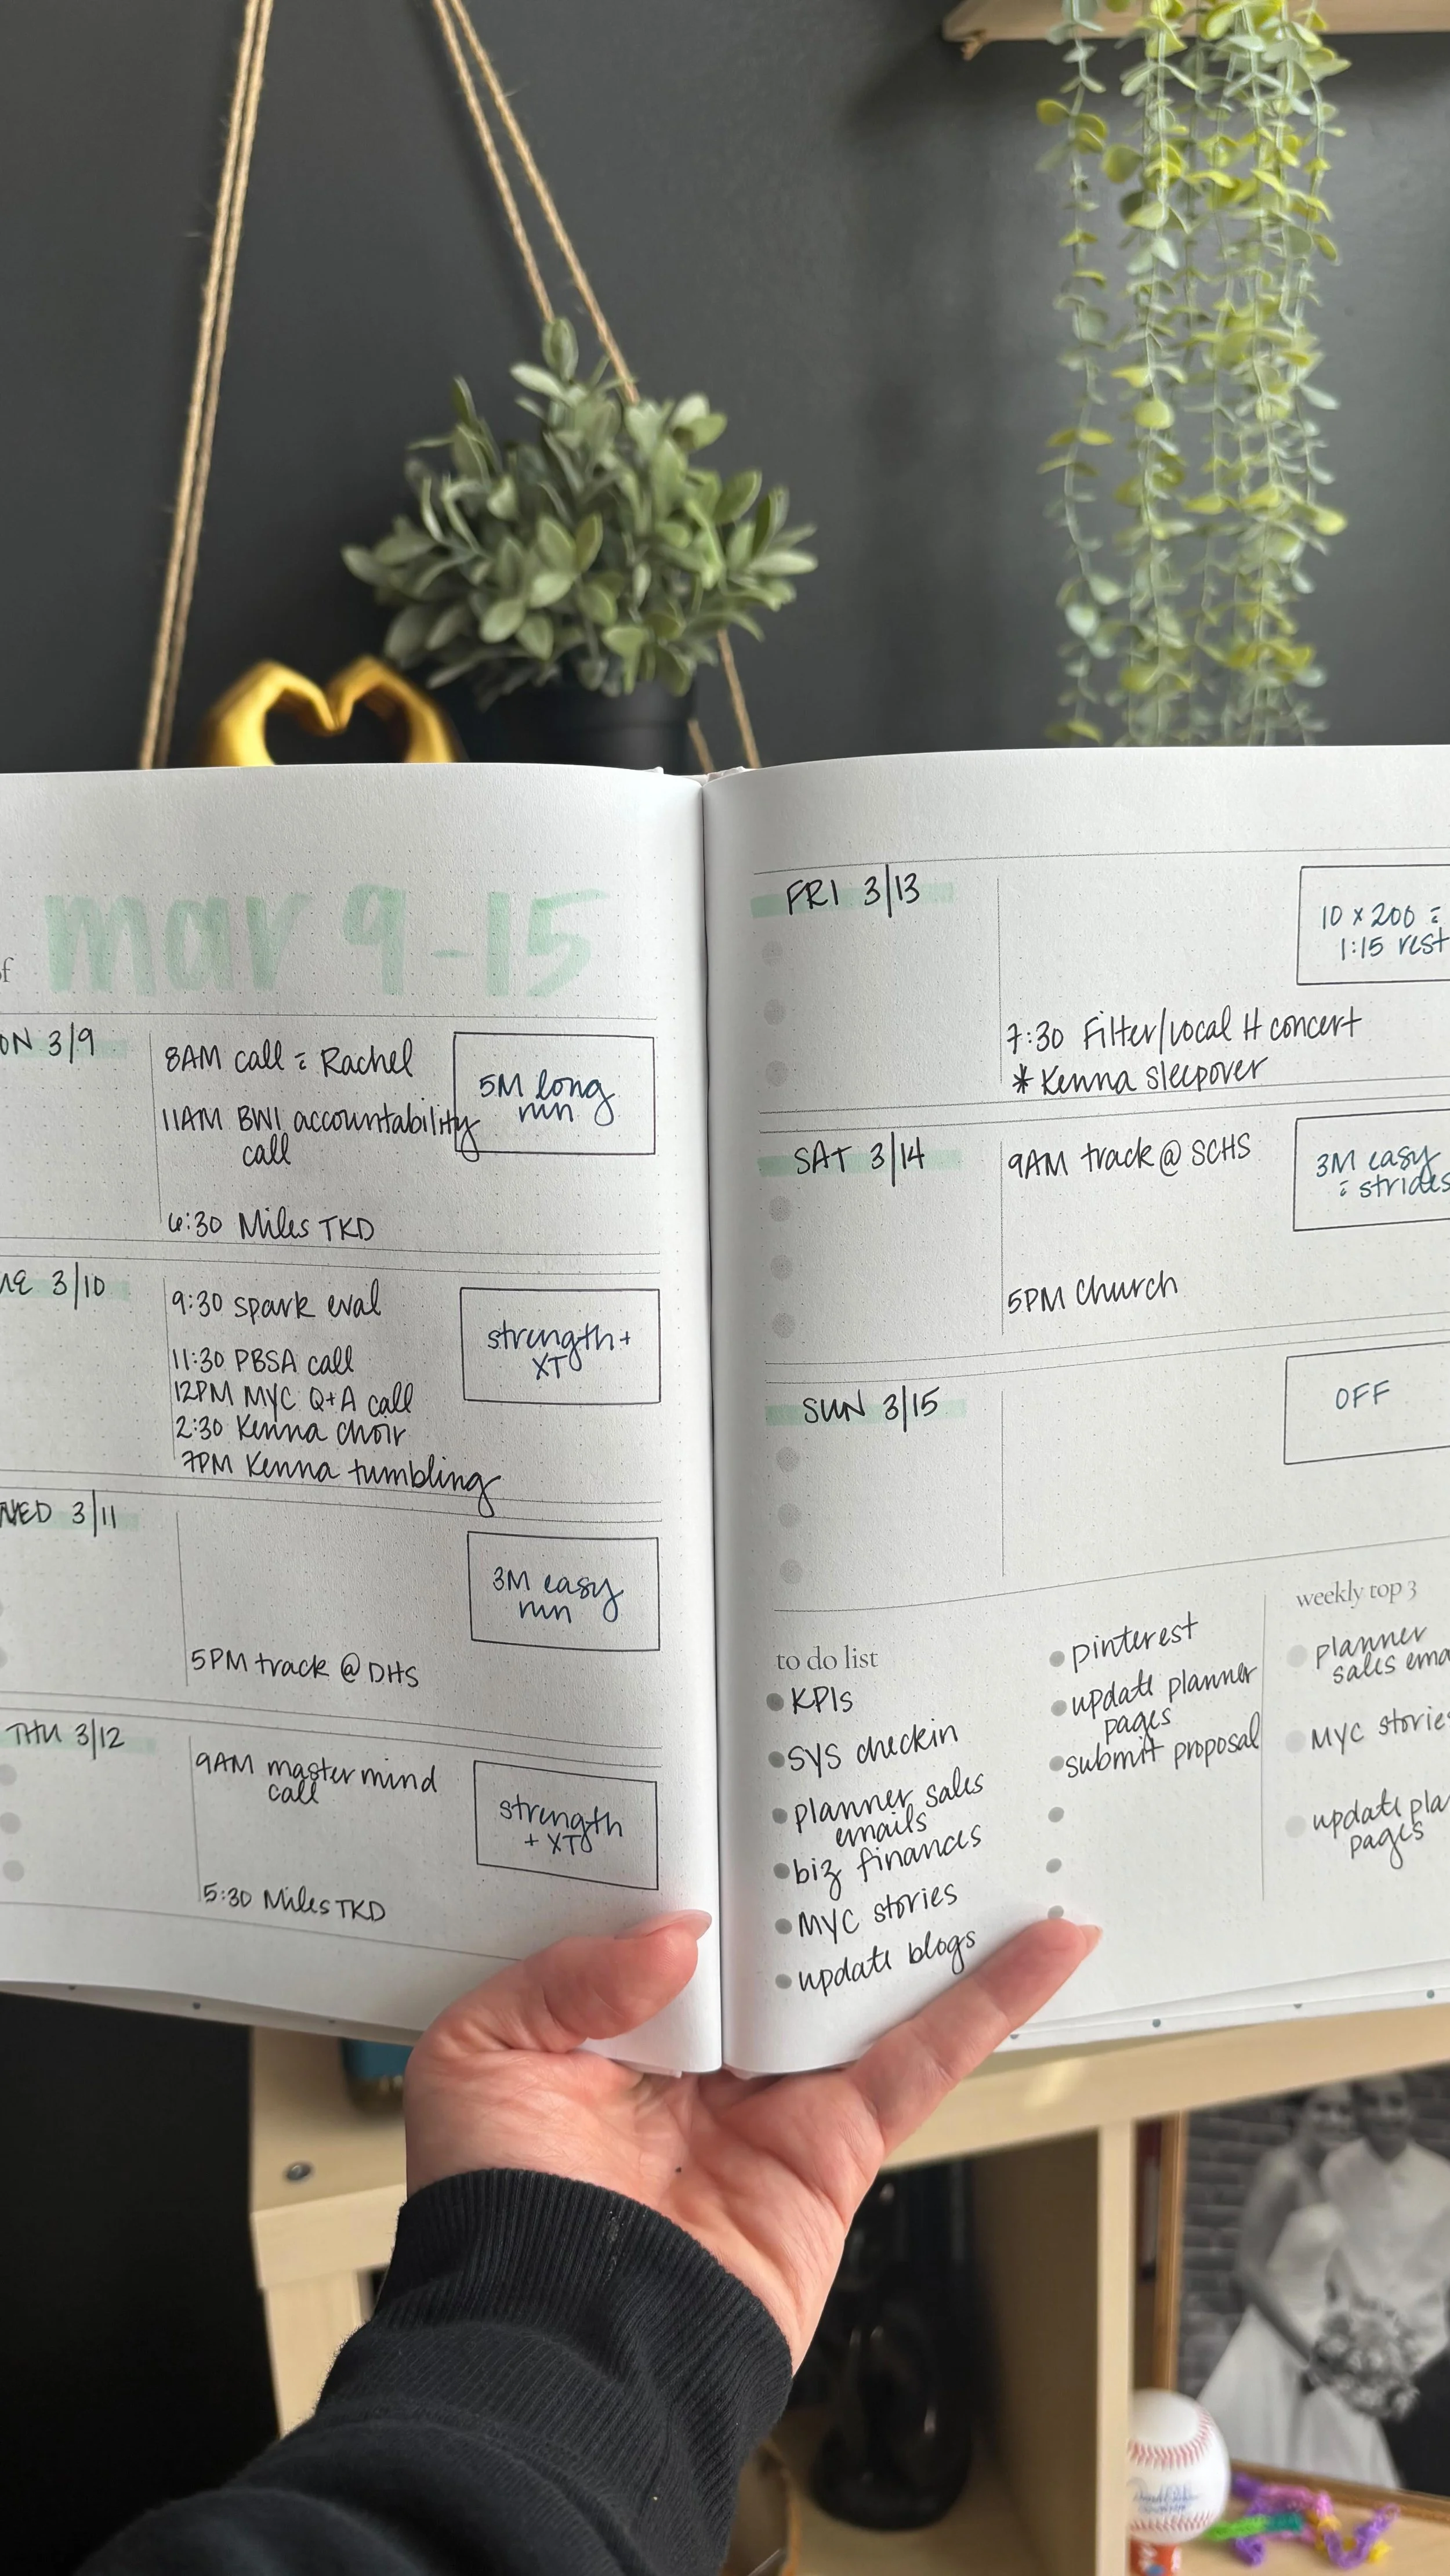 of mar 9-15
ON 3/9
8AM call c̄ Rachel
11AM BWI accountability
call
6:30 Miles TKD
5M long
run
UE 3/10
9:30 spark eval
11:30 PBSA call
12PM MYC Q+A call
2:30 Kenna choir
7PM Kenna tumbling
strength +
XT
WED 3/11
5PM track @ DHS
3M easy
run
THU 3/12
9AM mastermind
call
5:30 Miles TKD
strength
+ XT
FRI 3/13
7:30 Filter/Local H concert
* Kenna sleepover
10 x 200 c̄
1:15 rest
SAT 3/14
9AM track @ SCHS
5PM Church
3M easy
c̄ strides
SUN 3/15
OFF
to do list
KPIs
SYS checkin
planner sales
emails
biz finances
MYC stories
update blogs
pinterest
update planner
pages
submit proposal
weekly top 3
planner
sales ema
MYC storie
update pla
pages